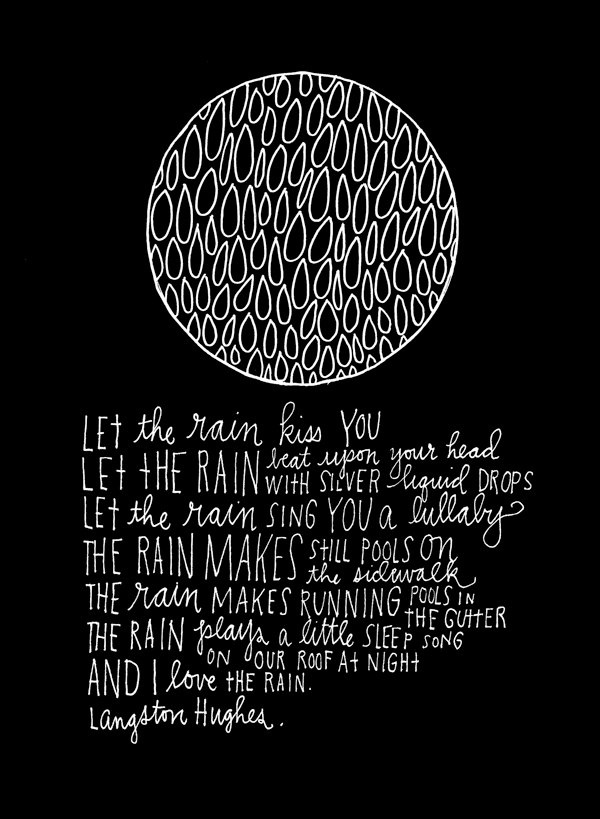 LEt the rain kiss YOU
LEt tHE RAIN beat upon your head
WItH SILVER liquid DROPS
LEt the rain SING YOU a lullaby
tHE RAIN MAKES StILL POOLS ON
the sidewalk
tHE rain MAKES RUNNING POOLS IN
tHE GUttER
tHE RAIN plays a little SLEEP SONG
ON OUR ROOF At NIGHt
AND I love tHE RAIN.
Langston Hughes.